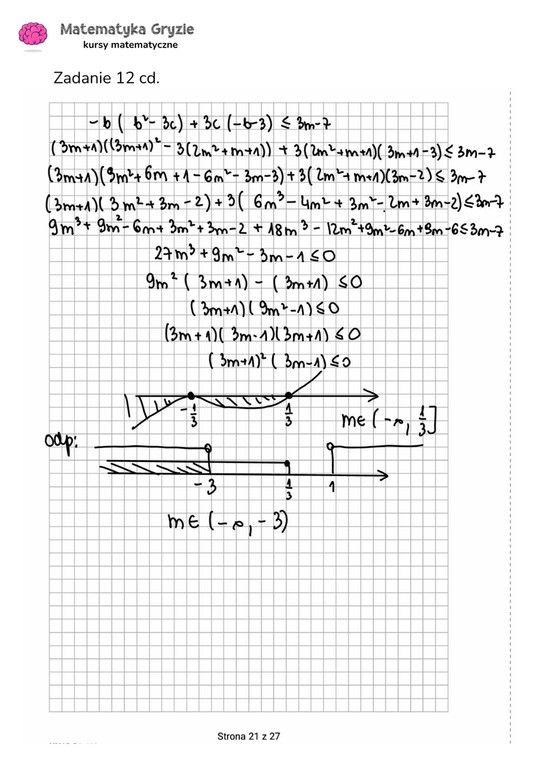 Matematyka Gryzie
kursy matematyczne
Zadanie 12 cd.
-b ( b² - 3c) + 3c (-b-3) ≤ 3m-7
(3m+1)((3m+1)² - 3(2m²+m+1)) + 3(2m²+m+1)(3m+1-3) ≤ 3m-7
(3m+1)(9m²+6m+1-6m²-3m-3)+3(2m²+m+1)(3m-2) ≤ 3m-7
(3m+1)(3m²+3m-2)+3(6m³-4m²+3m²-2m+3m-2) ≤ 3m-7
9m³+9m²-6m+3m²+3m-2+18m³-12m²+9m²-6m+9m-6 ≤ 3m-7
27m³+9m²-3m-1 ≤ 0
9m²(3m+1) - (3m+1) ≤ 0
(3m+1)(9m²-1) ≤ 0
(3m+1)(3m-1)(3m+1) ≤ 0
(3m+1)²(3m-1) ≤ 0
-1/3 1/3 m∈(-∞, 1/3]
odp:
-3 1/3 1
m∈(-∞, -3)
Strona 21 z 27